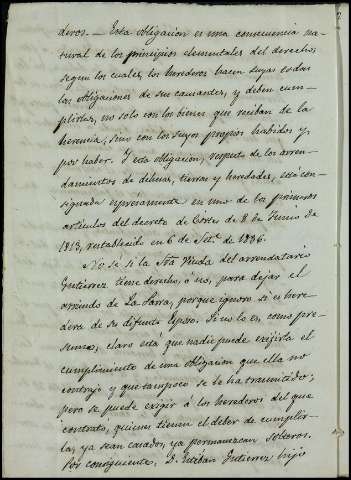 deros. — Esta obligacion es una consecuencia na-
tural de los principios elementales del derecho,
segun los cuales, los herederos hacen suyas todas
las obligaciones de sus causantes, y deben cum-
plirlas, no solo con los bienes que reciban de la
herencia, sino con los suyos propios habidos y
por haber. Y esta obligacion, respecto de los arren-
damientos de dehesas, tierras y heredades, está con-
signada espresamente en uno de los primeros
articulos del decreto de Cortes de 8 de Junio de
1813, restablecido en 6 de Set.e de 1836.
No sé si la Sra Viuda del arrendatario
Gutierrez tiene derecho, ó no, para dejar el
arriendo de La Sarra, porque ignoro si es here-
dera de su difunto Esposo. Si no lo es, como pre-
sumo, claro está que nadie puede exijirla el
cumplimiento de una obligacion que ella no
contrajo y que tampoco se le ha trasmitido;
pero se puede exigir á los herederos del que
contrató, quienes tienen el deber de cumplir-
la, ya sean casados, ya permanezcan solteros.
Por consiguiente, D. Esteban Gutierrez hijo